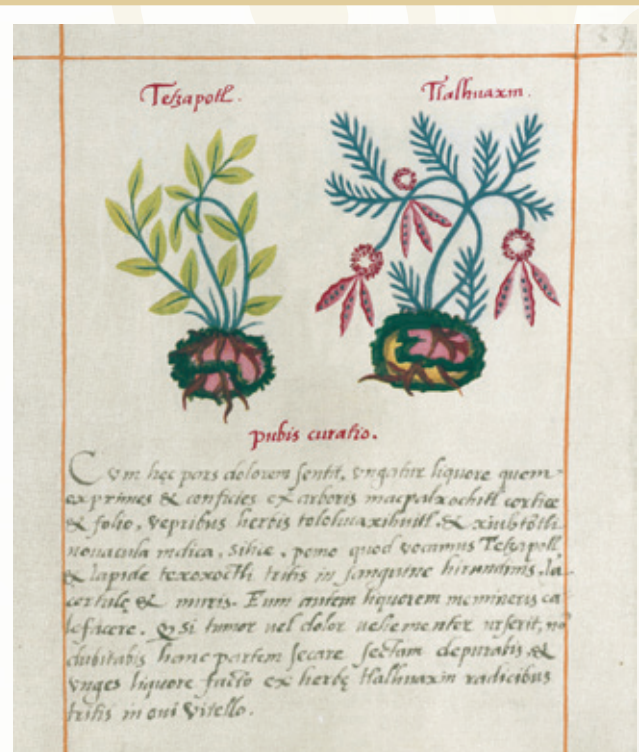 Tetzapotl.
Tlalhuaxin.
pubis curatio.
Cum hęc pars dolorem sentit, ungatur liquore quem
exprimes & conficies ex arboris macpalxochitl cortice
& folio, vepribus herbis tololucaxihuitl, & xiuhtõtli
nouacula indica, silice, pomo quod vocamus Tetzapotl
& lapide texoxoctli tritis in sanguine hirundinis, la-
certulę & muris. Eum autem liquorem memineris ca
lefacere. Q si tumor uel dolor uehementer urserit, nõ
dubitabis hanc partem secare sectam depurabis &
unges liquore facto ex herbę tlalhuaxin radicibus
tritis in oui vitello.